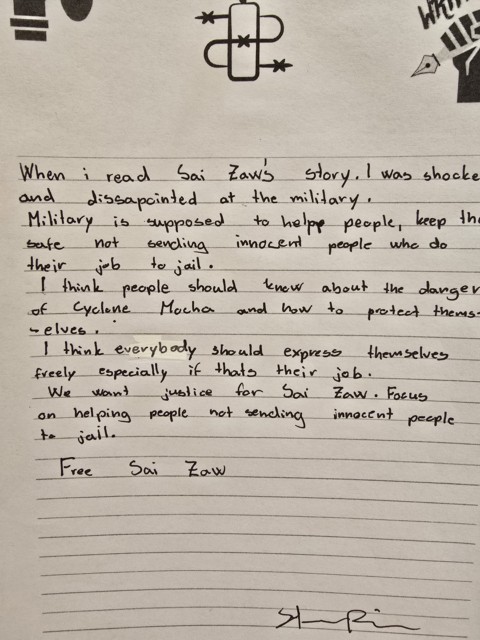 When i read Sai Zaw's story. I was shocke
and dissapointed at the military.
Military is supposed to help people, keep the
safe not sending innocent people who do
their job to jail.
I think people should know about the danger
of Cyclone Mocha and how to protect thems-
-elves.
I think everybody should express themselves
freely especially if thats their job.
We want justice for Sai Zaw. Focus
on helping people not sending innocent people
to jail.
Free Sai Zaw